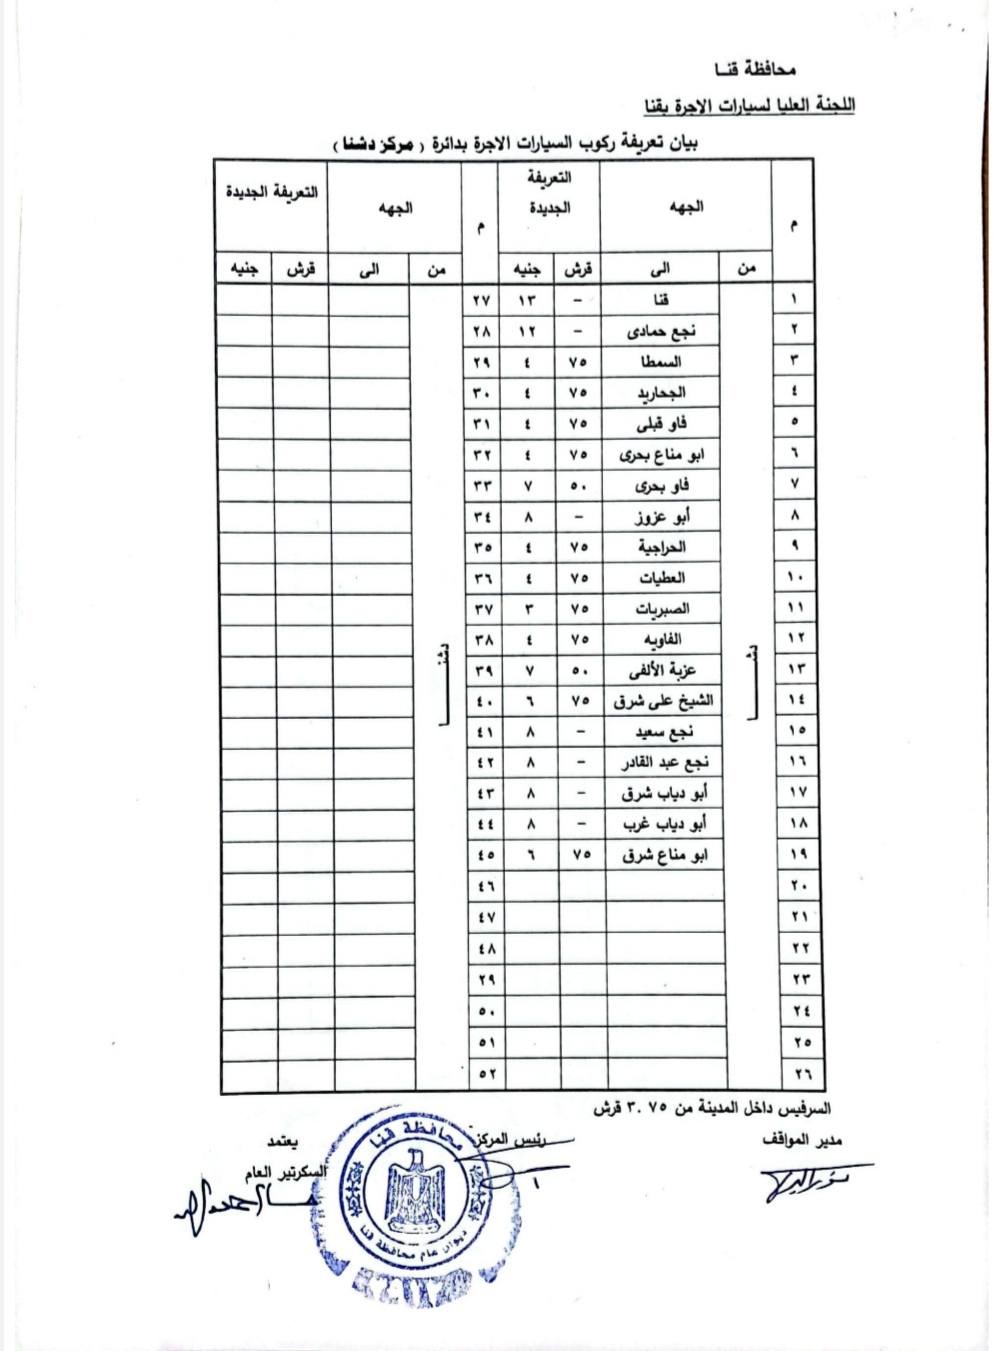 محافظة قنـا
اللجنة العليا لسيارات الاجرة بقنا
بيان تعريفة ركوب السيارات الاجرة بدائرة ( مركز دشنا )
م الجهه التعريفة الجديدة م الجهه التعريفة الجديدة
من الى قرش جنيه من الى قرش جنيه
١ قنا – ١٣ ٢٧
٢ نجع حمادى – ١٢ ٢٨
٣ السمطا ٧٥ ٤ ٢٩
٤ الجحاريد ٧٥ ٤ ٣٠
٥ فاو قبلى ٧٥ ٤ ٣١
٦ ابو مناع بحرى ٧٥ ٤ ٣٢
٧ فاو بحرى ٥٠ ٧ ٣٣
٨ أبو عزوز – ٨ ٣٤
٩ الحراجية ٧٥ ٤ ٣٥
١٠ العطيات ٧٥ ٤ ٣٦
١١ الصبريات ٧٥ ٣ ٣٧
١٢ الفاويه ٧٥ ٤ ٣٨
دشـــنا دشـــنا
١٣ عزبة الألفى ٥٠ ٧ ٣٩
١٤ الشيخ على شرق ٧٥ ٦ ٤٠
١٥ نجع سعيد – ٨ ٤١
١٦ نجع عبد القادر – ٨ ٤٢
١٧ أبو دياب شرق – ٨ ٤٣
١٨ أبو دياب غرب – ٨ ٤٤
١٩ ابو مناع شرق ٧٥ ٦ ٤٥
٢٠ ٤٦
٢١ ٤٧
٢٢ ٤٨
٢٣ ٢٩
٢٤ ٥٠
٢٥ ٥١
٢٦ ٥٢
السرفيس داخل المدينة من ٣.٧٥ قرش
مدير المواقف رئيس المركز يعتمد
السكرتير العام
محافظة قنا
ديوان عام محافظة قنا